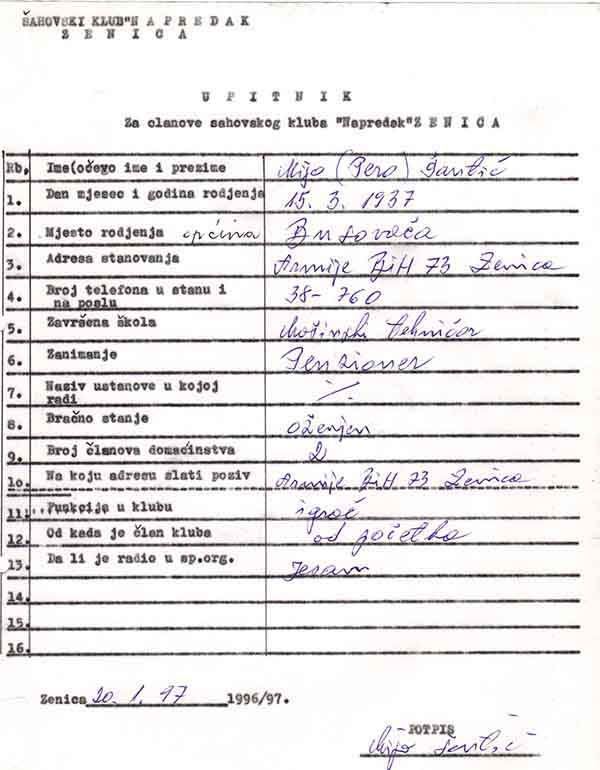 ŠAHOVSKI KLUB"N A P R E D A K
Z E N I C A
U P I T N I K
Za clanove sahovskog kluba "Napredak"Z E N I C A
Rb. Ime(očego ime i prezime Mijo (Pero) Šantić
1. Dan mjesec i godina rodjenja 15. 3. 1937
2. Mjesto rodjenja općina Busovača
3. Adresa stanovanja Armije BiH 73 Zenica
4. Broj telefona u stanu i 38-760
na poslu
5. Završena škola Mašinski tehničar
6. Zanimanje Penzioner
7. Naziv ustanove u kojoj ·/.
radi
8. Bračno stanje oženjen
9. Broj članova domaćinstva 2
10. Na koju adresu slati poziv Armije BiH 73 Zenica
11. Funkcija u klubu igrač
12. Od kada je član kluba od početka
13. Da li je radio u sp.org. Jesam
14.
15.
16.
Zenica 20. 1. 97 1996/97.
POTPIS
Mijo Šantić